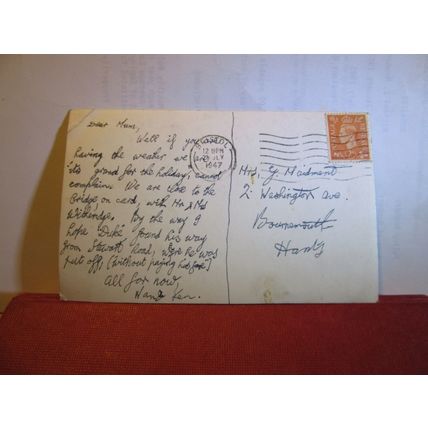 Dear Mum,
Well if you are
having the weather we are
its grand for the holiday, cannot
complain. We are close to the
Bridge on card, with Mr & Mrs
By the way I
hope "Dick" found his way
from Stewart Road, where he was
put off, (without paying his fare")
All for now,
Ken.
BRISTOL
12 15 PM
JLY
1947
Mrs G. Maidment
2 Washington Ave.
Bournemouth
Hants